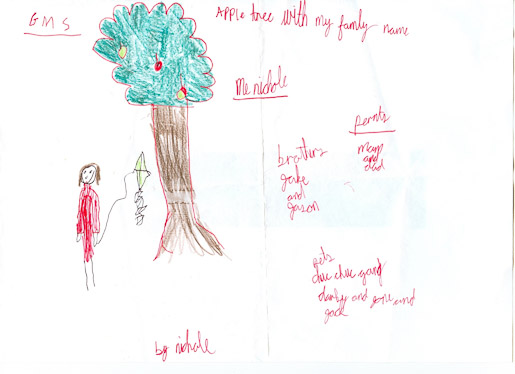 GMS
Apple tree with my family name
Me nichole
perints
mom
and
dad
brothers
jake
and
jason
pets
chue chue
and
jack
by nichole